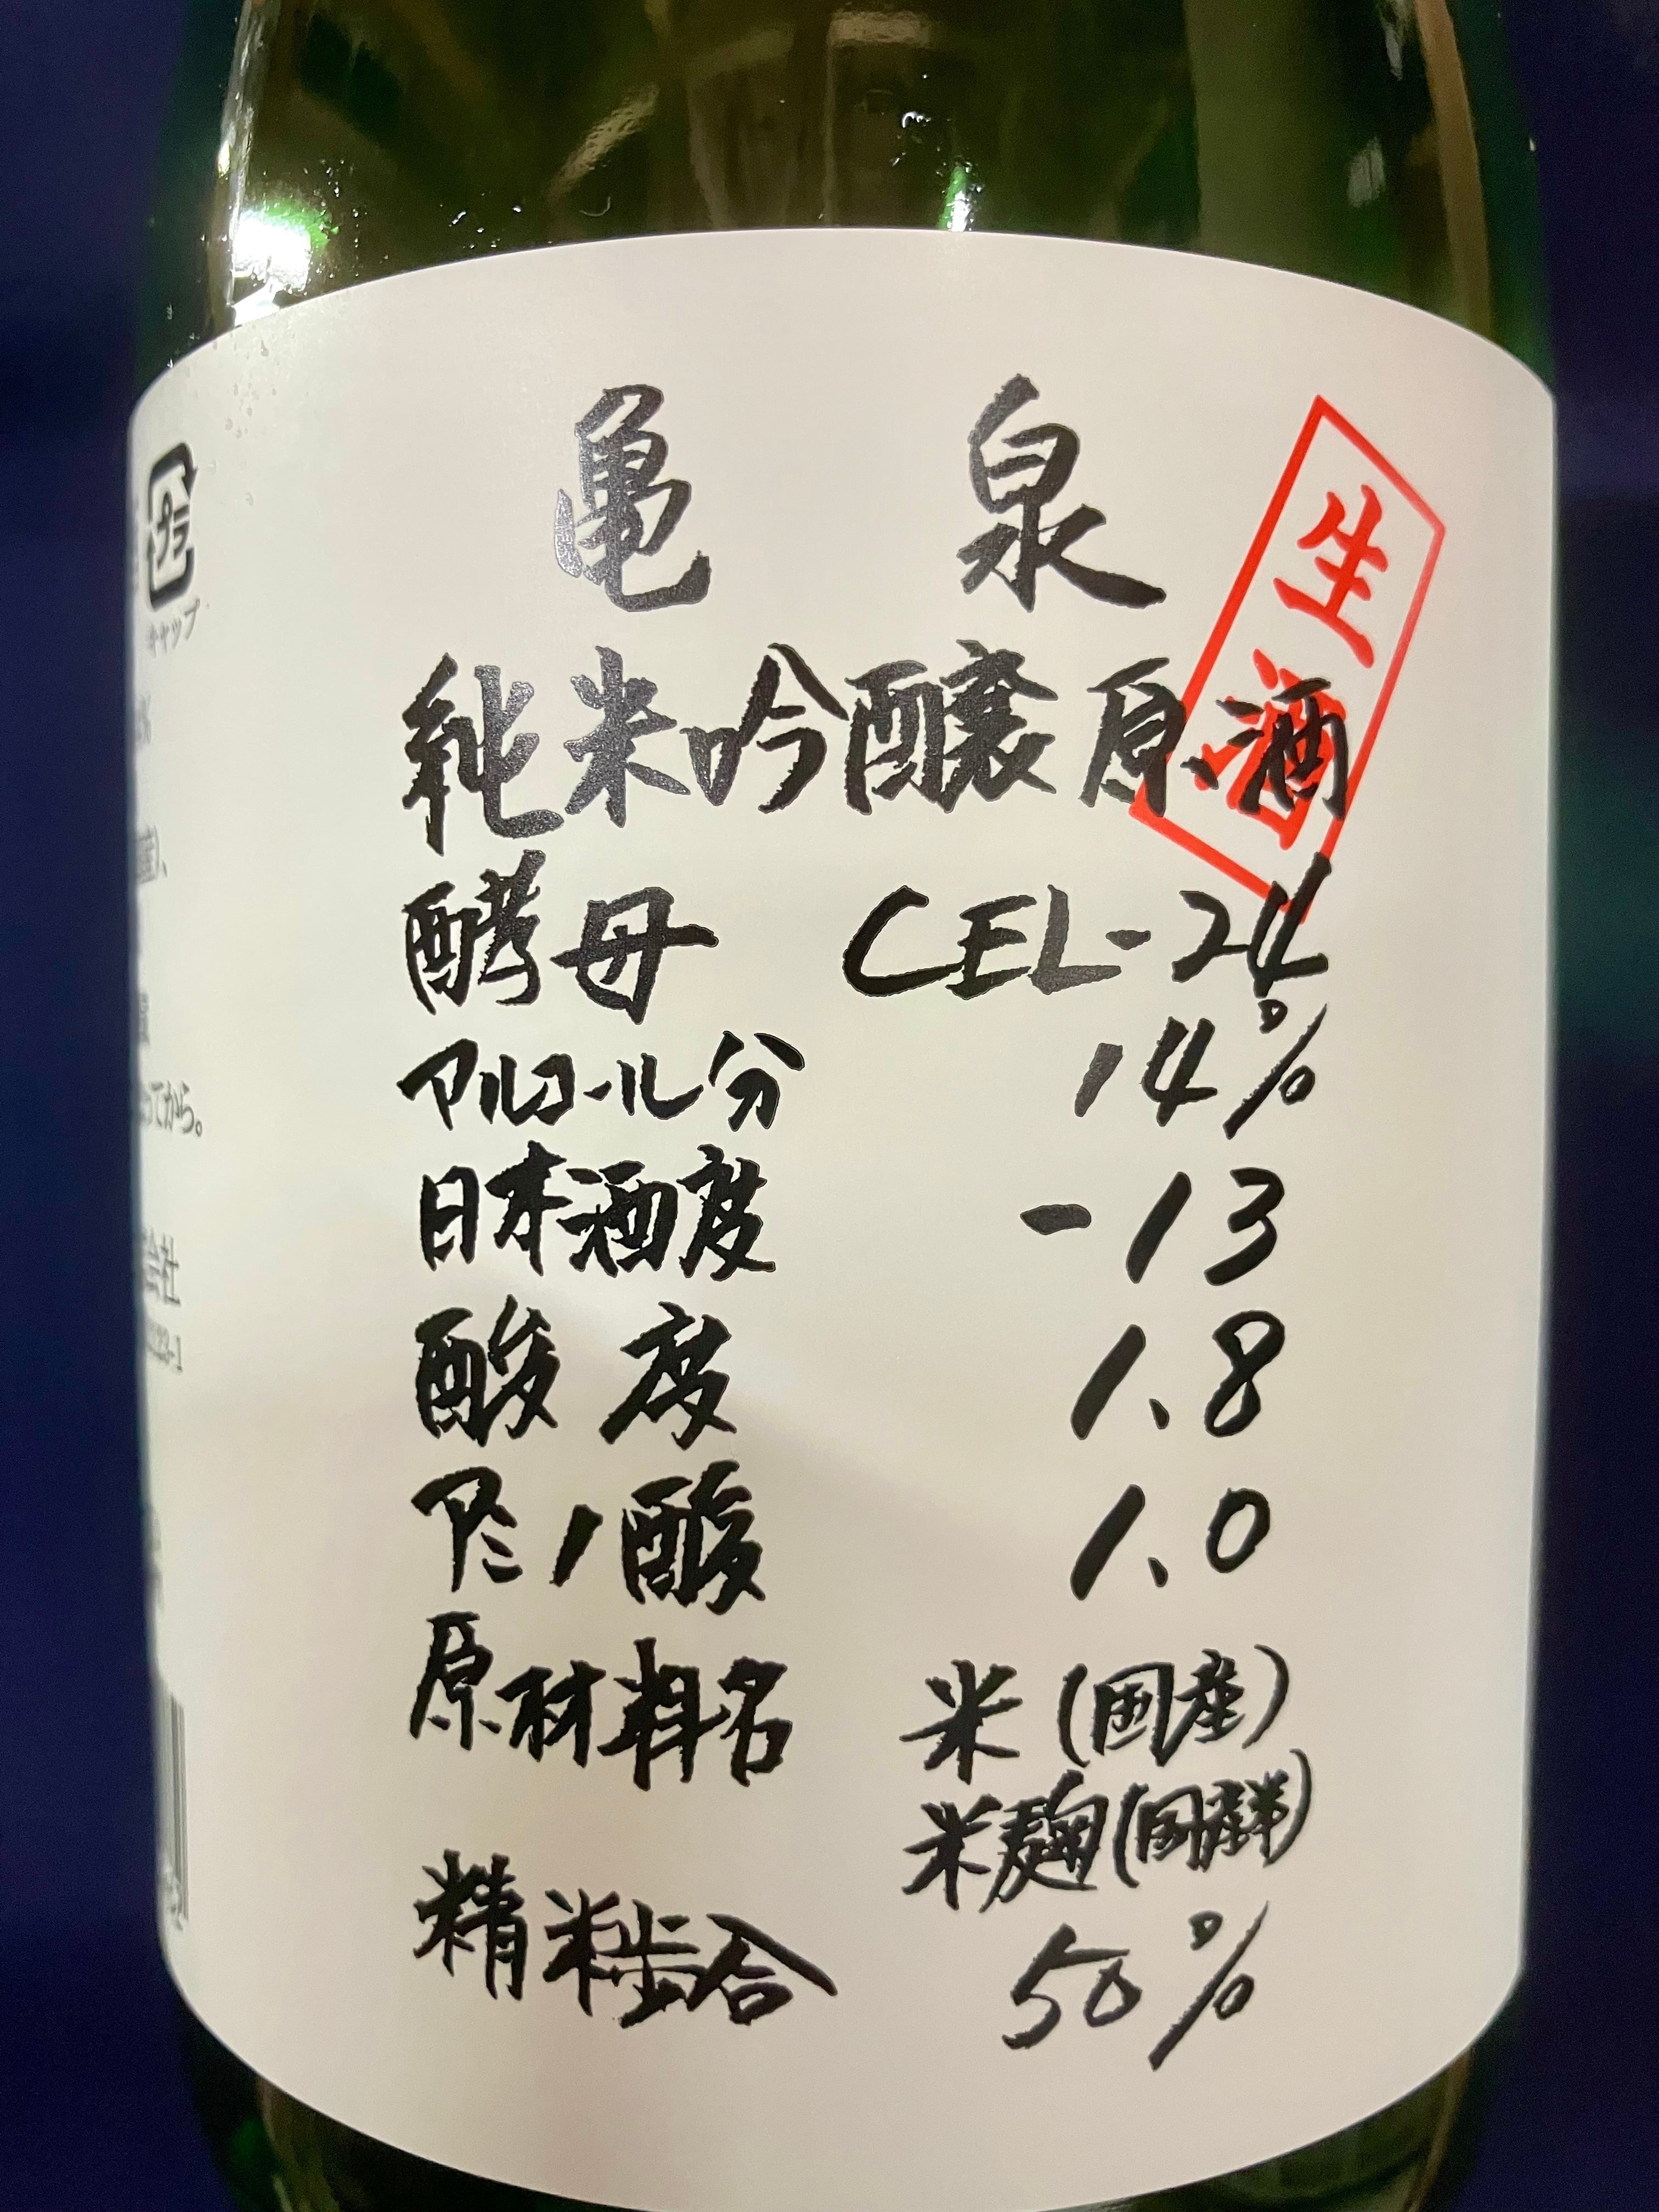 亀泉
生酒
純米吟醸原酒
酵母 CEL-24
アルコール分 14%
日本酒度 -13
酸度 1.8
アミノ酸 1.0
原材料名 米(国産)
米麹(国産米)
精米歩合 50%
プラ
キャップ
ってから。
会社